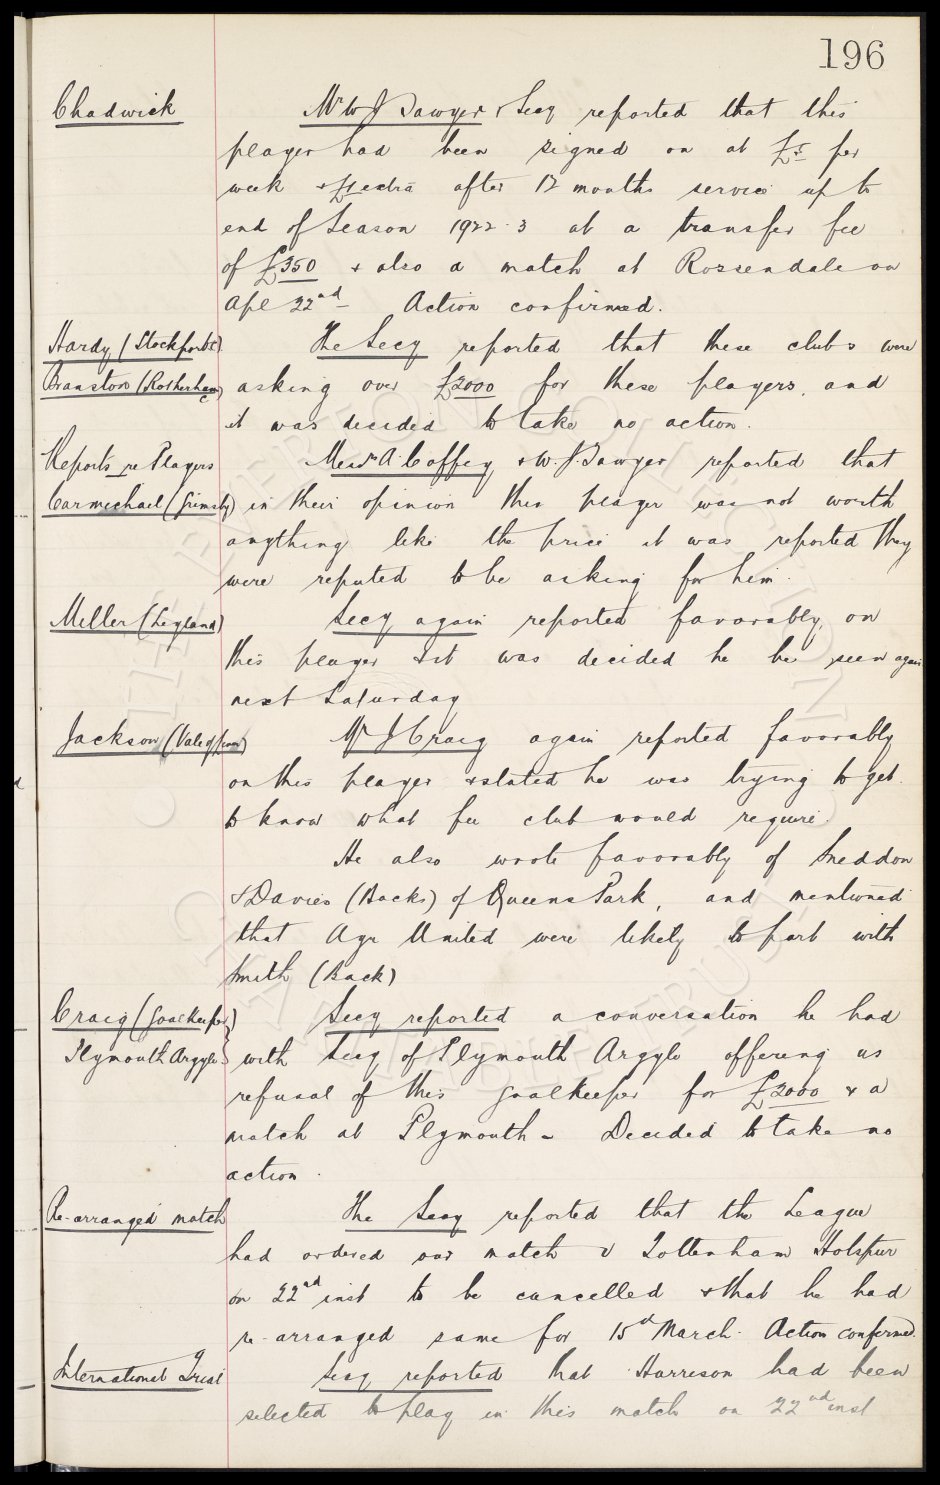 196
Chadwick
Mr W J Sawyer & Secy reported that this
player had been signed on at £5 per
week & £1 extra after 12 months service up to
end of Season 1922.3 at a transfer fee
of £350 & also a match at Rossendale on
Apl 22nd - Action confirmed.
Hardy (Stockport C)
Branston (Rotherham C)
The Secy reported that these clubs were
asking over £2000 for these players, and
it was decided to take no action.
Reports re Players
Carmichael (Grimsby)
Messrs A. Coffey & W. J. Sawyer reported that
in their opinion this player was not worth
anything like the price it was reported they
were reputed to be asking for him.
Miller (Leyland)
Secy again reported favorably on
this player & it was decided he be seen again
next Saturday
Jackson (Vale of Leven)
Mr J Craig again reported favorably
on this player & stated he was trying to get
to know what fee club would require.
He also wrote favorably of Sneddon
& Davies (Backs) of Queens Park, and mentioned
that Ayr United were likely to part with
Smith (Back)
Craig (Goalkeeper)
Plymouth Argyle
Secy reported a conversation he had
with Secy of Plymouth Argyle offering us
refusal of this goalkeeper for £2000 & a
match at Plymouth - Decided to take no
action.
Re-arranged match
The Secy reported that the League
had ordered our match v Tottenham Hotspur
on 22nd inst to be cancelled & that he had
re-arranged same for 15th March. Action confirmed.
International Trial
Secy reported that Harrison had been
selected to play in this match on 22nd inst